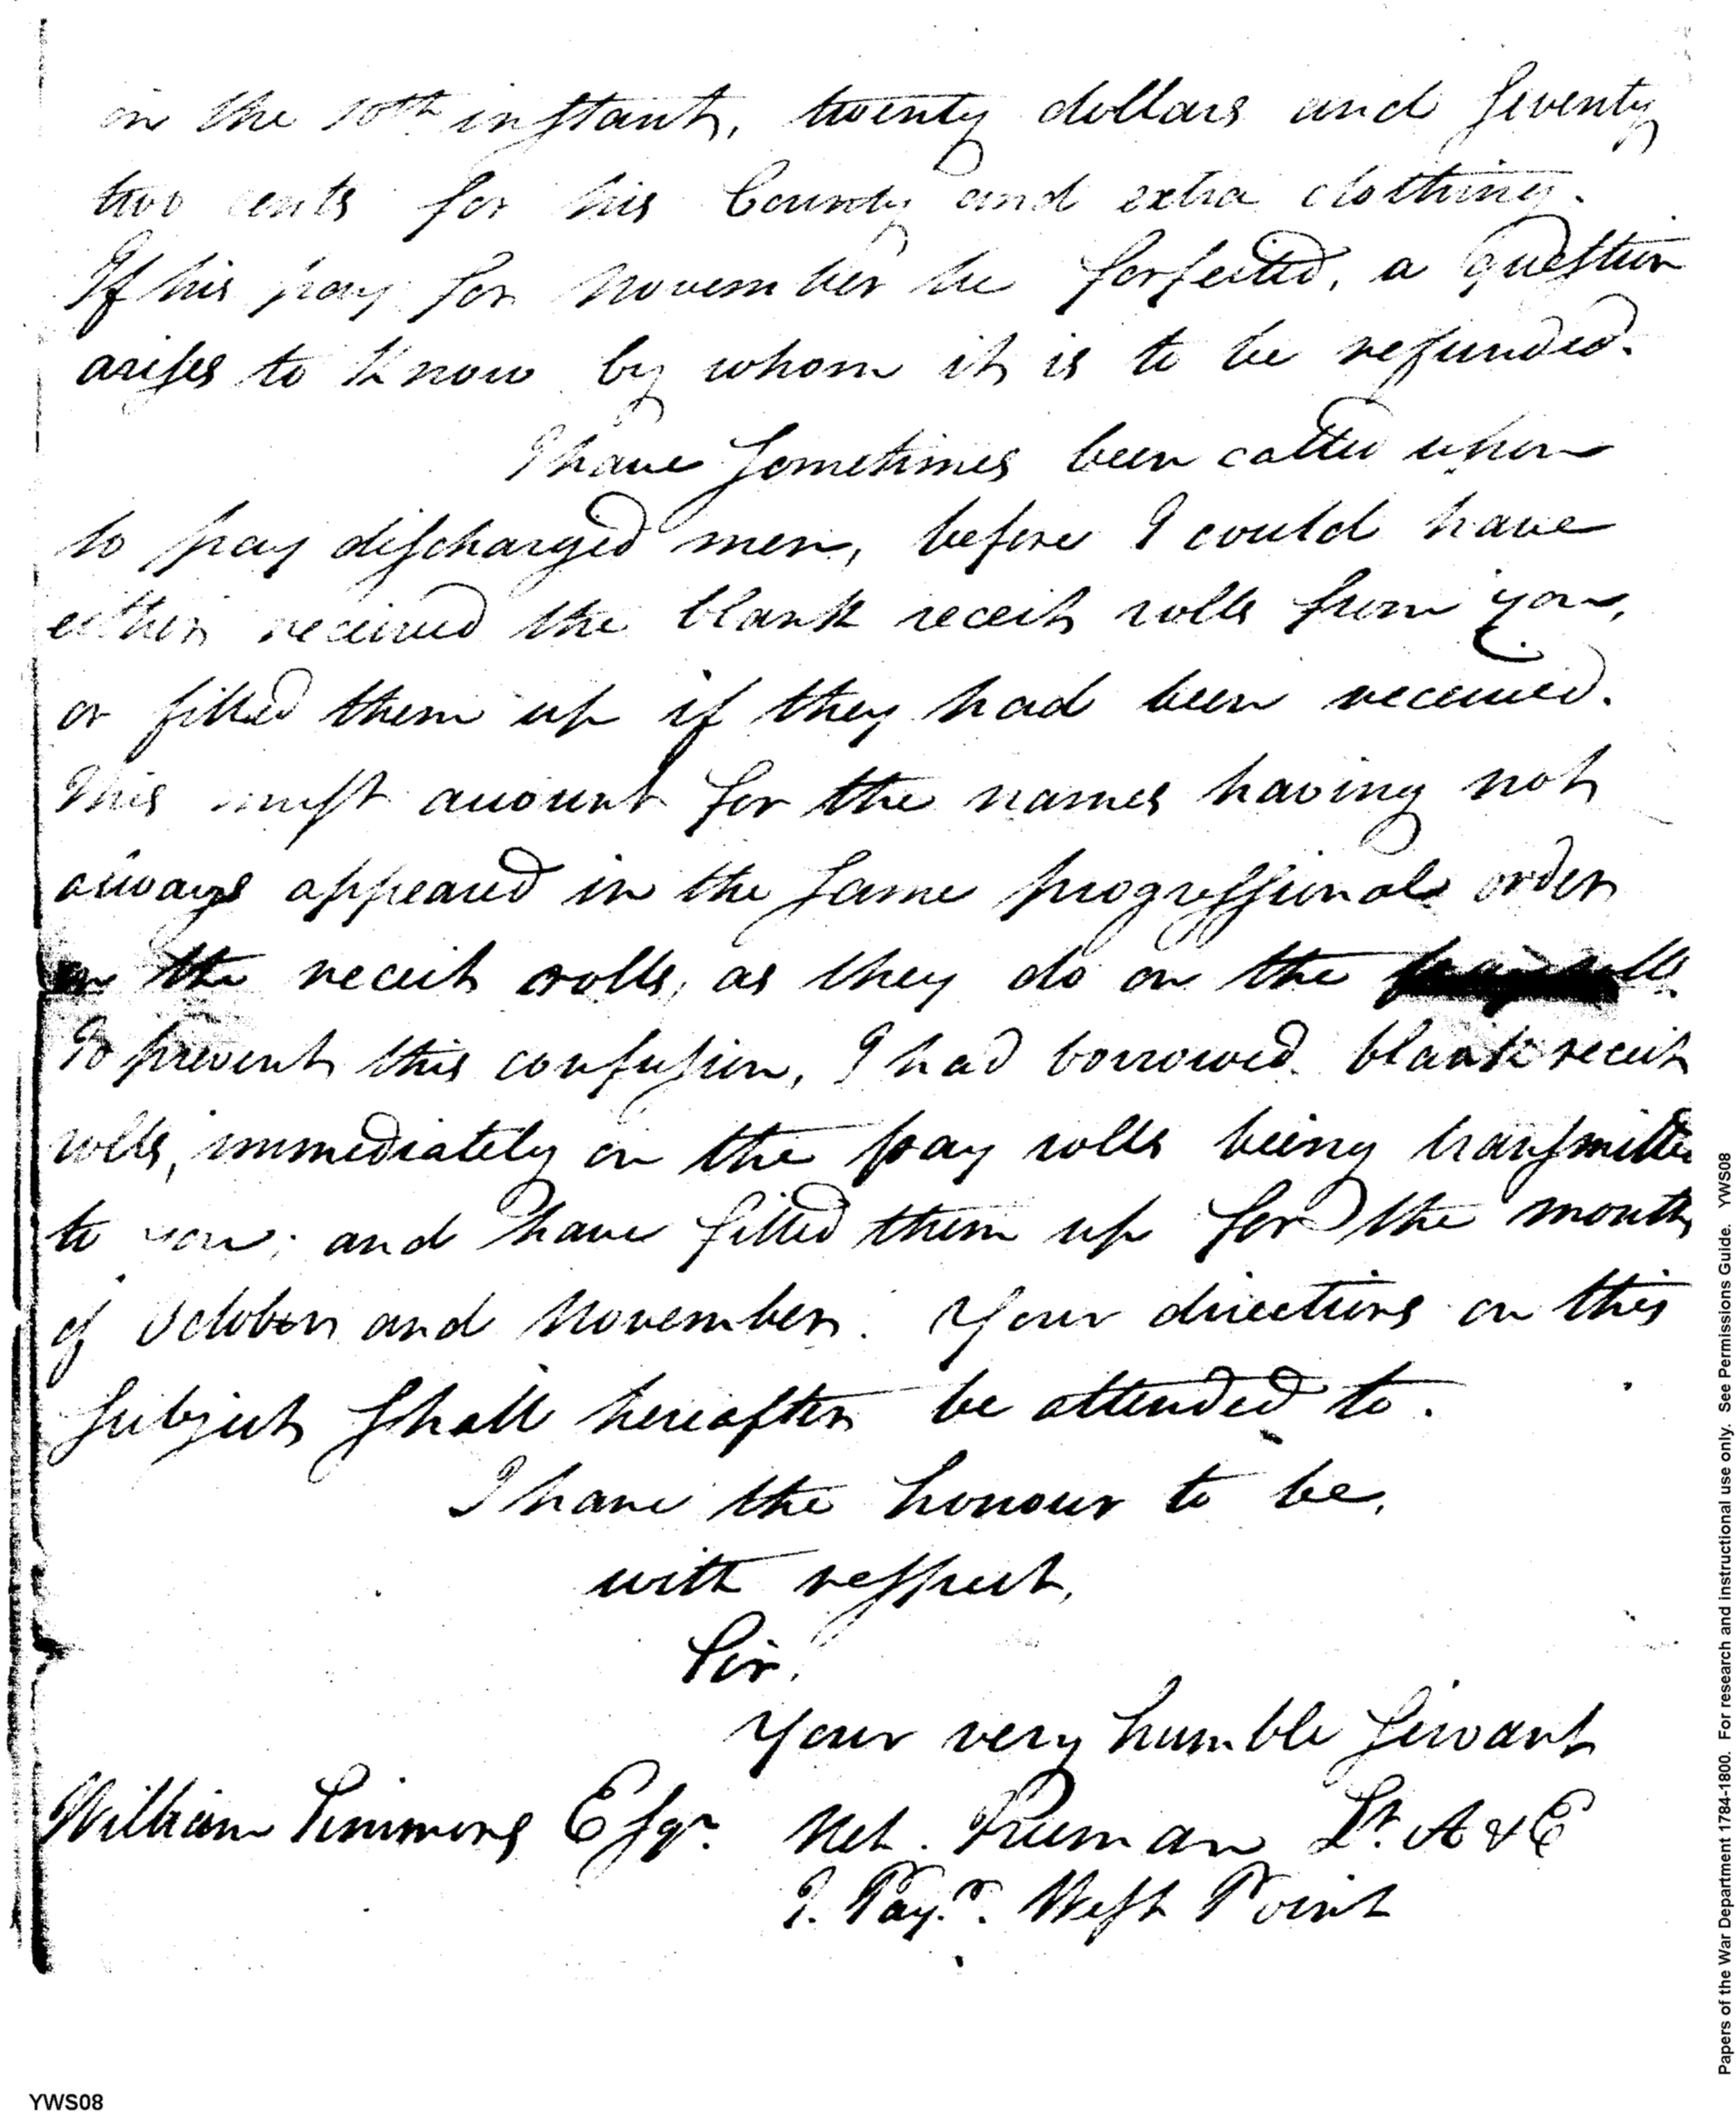 on the 10th instant, twenty dollars and seventy
two cents for his bounty and extra clothing.
If his pay for November be forfeited, a question
arises to know by whom it is to be refunded.
I have sometimes been called upon
to pay discharged men, before I could have
either received the blank receit rolls from you,
or filled them up if they had been received.
This must account for the names having not
always appeared in the same progressional order
on the receit rolls, as they do on the pay rolls.
To prevent this confusion, I had borrowed blank receit
rolls, immediately on the pay rolls being transmitted
to you; and have filled them up for the month
of October and November. Your directions on this
subject shall hereafter be attended to.
I have the honour to be,
with respect,
Sir,
Your very humble servant
William Simmons Esqr. Neh. Freeman Lt. A & E
P. Paymr. West Point
Papers of the War Department 1784-1800. For research and instructional use only. See Permissions Guide. YWS08
YWS08